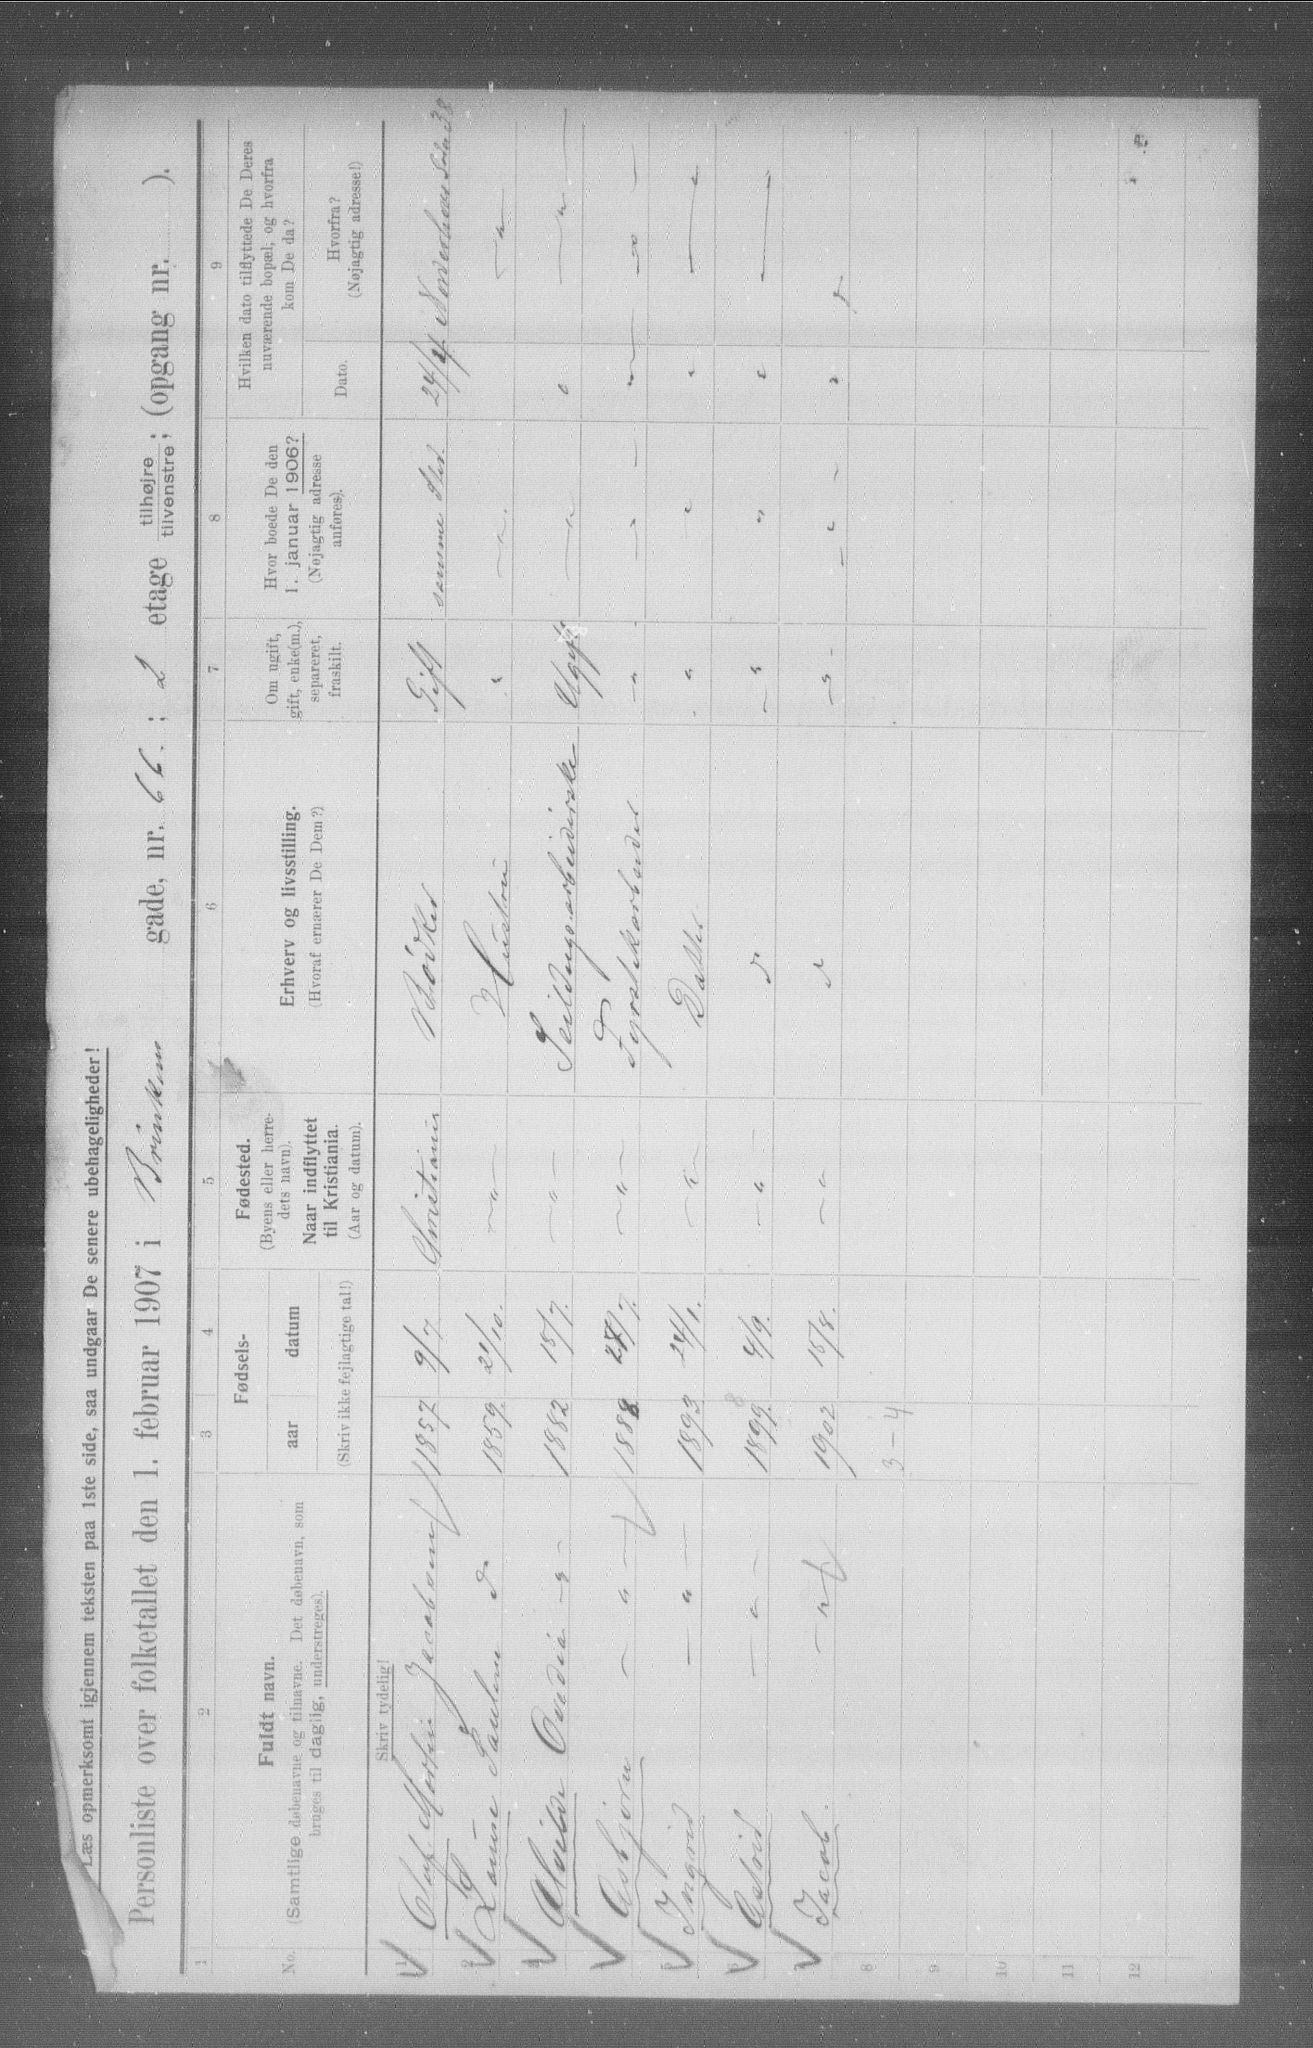 Læs opmerksomt igjennem teksten paa 1ste side, saa undgaar De senere ubehageligheder!
Personliste over folketallet den 1. februar 1907 i Brinken gade, nr. 66. ; 2 etage tilhøjre / tilvenstre; (opgang nr. ).
1 2 3 4 5 6 7 8 9
No.
Fuldt navn.
(Samtlige døbenavne og tilnavne. Det døbenavn, som
bruges til daglig, understreges).
Fødsels-
aar datum
(Skriv ikke fejlagtige tal!)
Fødested.
(Byens eller herre-
dets navn).
Naar indflyttet
til Kristiania.
(Aar og datum).
Erhverv og livsstilling.
(Hvoraf ernærer De Dem?)
Om ugift,
gift, enke(m.),
separeret,
fraskilt.
Hvor boede De den
1. januar 1906?
(Nøjagtig adresse
anføres).
Hvilken dato tilflyttede De Deres
nuværende bopæl, og hvorfra
kom De da?
Dato.
Hvorfra?
(Nøjagtig adresse!)
Skriv tydelig!
1 Olaf Martin Jacobsen 1857 9/7 Christiania Bödker Gift samme sted. 24/
2 Louise Pauline d 1859. 21/10. — " — Hustru " — " .
3 Alvilde Ovedia — " — 1882 15/7. — " — Ugift — " — " — " —
4 Asbjörn — " — 1888 7. — " — Fyrstikarbeider — " — — " — " — " —
5 Ingrid — " — 1893 24/1. — " — Datter " " " — "
6 Astrid — " — 1899. 4/9. — " d — " " " —
7 Jacob. — " 1902 15/8. — " d — " — — " — " "
8 3 – 4
9
10
11
12